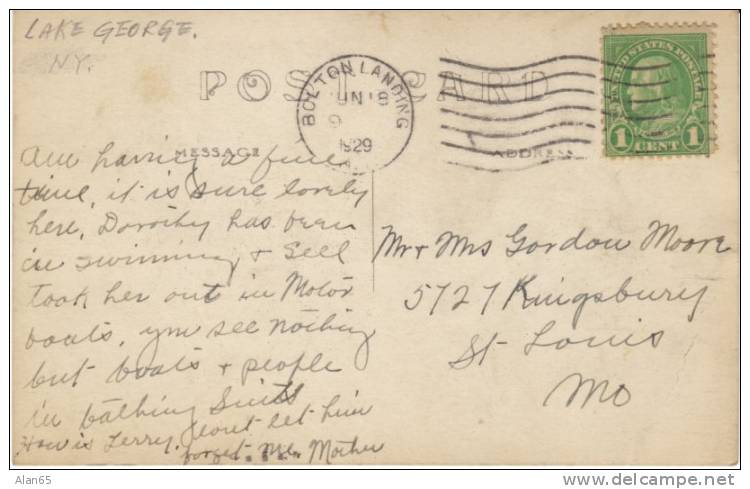 LAKE GEORGE.
N.Y.
POST CARD
BOLTON LANDING
JUN 8
9
1929
UNITED STATES POSTAGE
1 CENT 1
MESSAGE
ADDRESS
Am having a fine
time, it is sure lovely
here, Dorothy has been
in swimming & Sell
took her out in Motor
boats, you see nothing
but boats & people
in bathing Suits
How is Terry. dont let him
forget me. Mother
Mr & Mrs Gordon Moore
5727 Kingsbury
St Louis
Mo
Alan65
www.delcampe.net